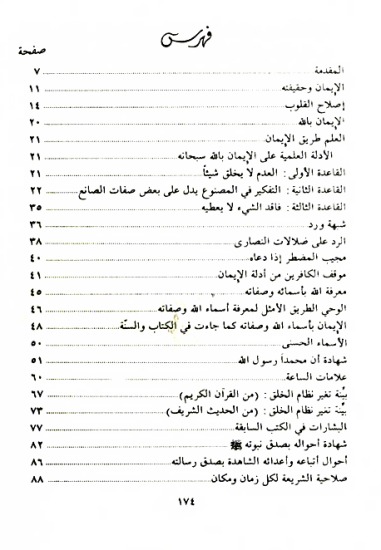 فهرس
صفحة
المقدمة ٧
الإيمان وحقيقته ١١
إصلاح القلوب ١٤
الإيمان بالله ٢٠
العلم طريق الإيمان ٢١
الأدلة العلمية على الإيمان بالله سبحانه ٢١
القاعدة الأولى: العدم لا يخلق شيئاً ٢١
القاعدة الثانية: التفكير في المصنوع يدل على بعض صفات الصانع ٢٢
القاعدة الثالثة: فاقد الشيء لا يعطيه ٣٥
شبهة ورد ٣٦
الرد على ضلالات النصارى ٣٨
مجيب المضطر إذا دعاه ٤٠
موقف الكافرين من أدلة الإيمان ٤١
معرفة الله بأسمائه وصفاته ٤٥
الوحي الطريق الأمثل لمعرفة أسماء الله وصفاته ٤٦
الإيمان بأسماء الله وصفاته كما جاءت في الكتاب والسنّة ٤٨
الأسماء الحسنى ٥٠
شهادة أن محمداً رسول الله ٥١
علامات الساعة ٦٠
بيّنة تغير نظام الخلق: (من القرآن الكريم) ٦٧
بيّنة تغير نظام الخلق: (من الحديث الشريف) ٧٣
البشارات في الكتب السابقة ٧٧
شهادة أحواله بصدق نبوته ﷺ ٨٢
أحوال أتباعه وأعدائه الشاهدة بصدق رسالته ٨٦
صلاحية الشريعة لكل زمان ومكان ٨٨
١٧٤